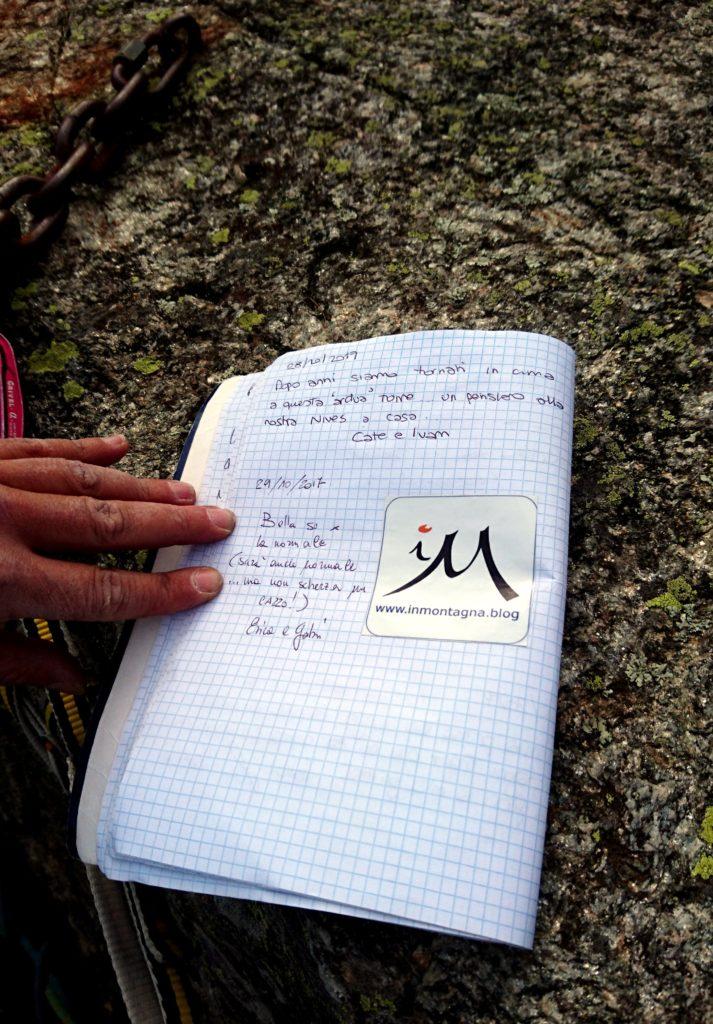 28/10/2017
Dopo anni siamo tornati in cima
a questa "ardua" Torre un pensiero alla
nostra Nives a casa.
Cate e Ivam
29/10/2017
Bella so x
la normale
(sarà anche normale
... ma non scherza per
cazzo!)
Erica e Gabri
iM
www.inmontagna.blog
GRIVEL